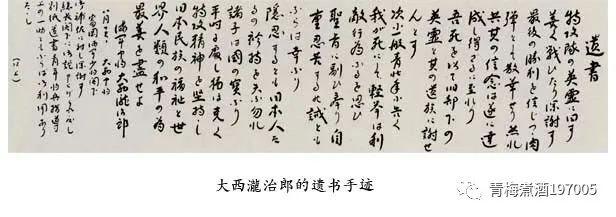 遺書
特攻隊の英霊に曰す
善く戦ひたり深謝す
最後の勝利を信じつゝ肉
彈として散華せり然れ
共其の信念は遂に達
成し得ざるに至れり
吾死を以て旧部下の
英霊と其の遺族に謝せ
んとす
次に一般青壮年に告ぐ
我が死にして軽挙は利
敵行為なるを思ひ
聖旨に副ひ奉り自
重忍苦するの誡とも
ならば幸なり
隠忍するとも日本人た
るの矜持を失ふ勿れ
諸子は國の寶なり
平時に處し猶ほ克く
特攻精神を堅持し
日本民族の福祉と世
界人類の和平の為
最善を盡せよ
海軍中将大西瀧治郎
八月十六日
富岡海軍少将閣下
大西瀧治郎的遗书手迹
青梅煮酒197005